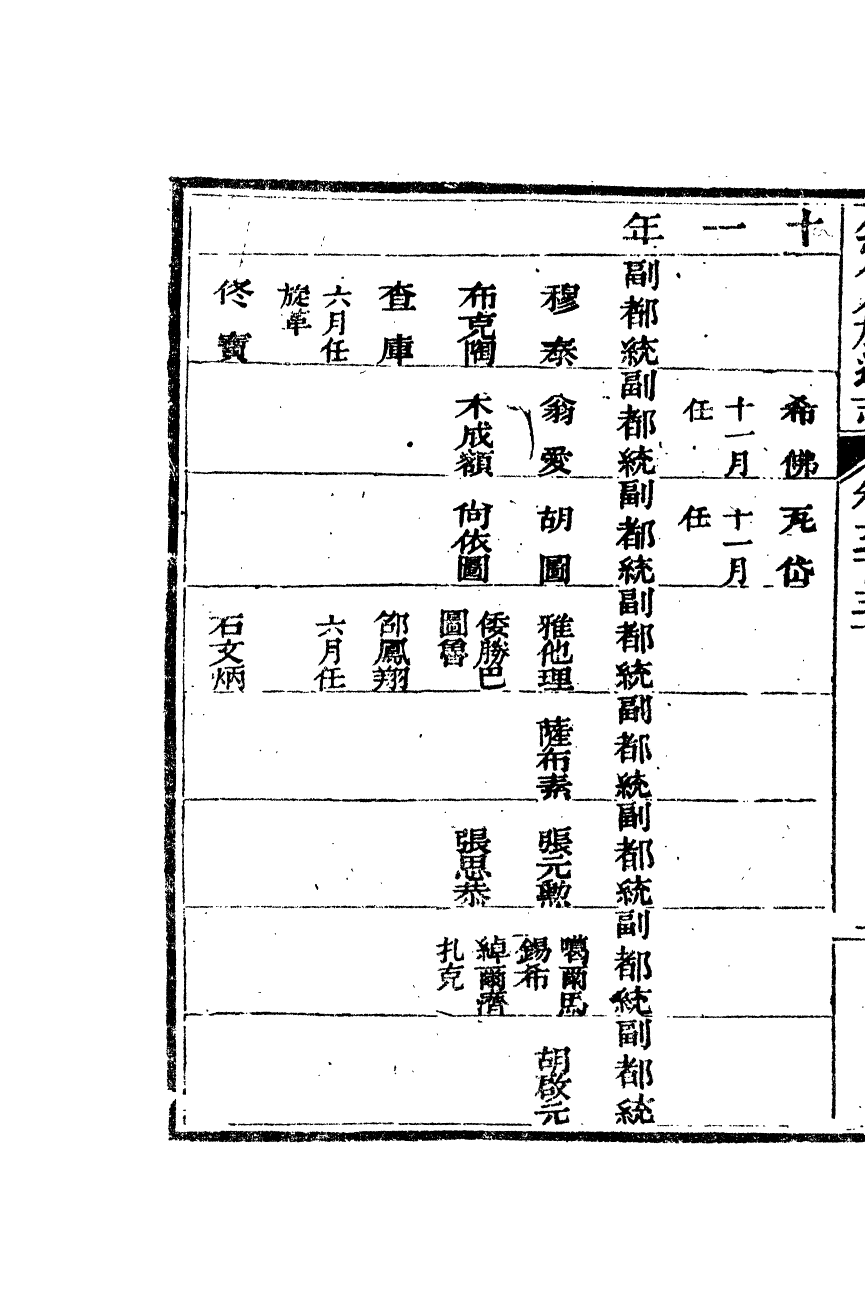 十一年
希佛
十一月
任
瓦岱
十一月
任
副都統
副都統
副都統
副都統
副都統
副都統
副都統
副都統
穆泰
翁愛
胡圖
雅他理
薩布素
張元勲
噶爾馬
錫布
胡啟元
布克陶
木成額
尙依圖
倭勝巴
圖魯
張思恭
綽爾濟
扎克
查庫
六月任
旋革
邵鳳翔
六月任
佟寶
石文炳